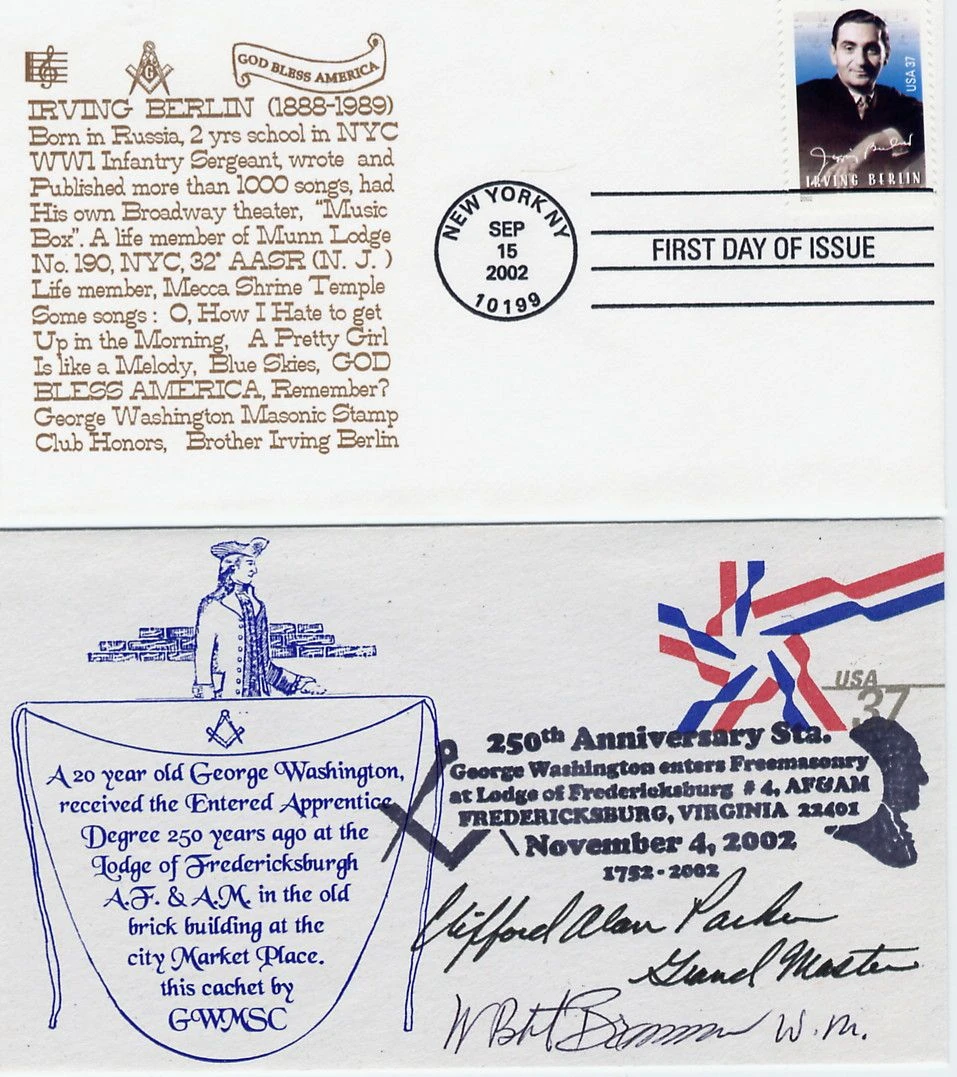 GOD BLESS AMERICA
G
IRVING BERLIN (1888-1989)
Born in Russia, 2 yrs school in NYC
WW1 Infantry Sergeant, wrote and
Published more than 1000 songs, had
His own Broadway theater, “Music
Box”. A life member of Munn Lodge
No. 190, NYC, 32° AASR (N. J. )
Life member, Mecca Shrine Temple
Some songs : O, How I Hate to get
Up in the Morning, A Pretty Girl
Is like a Melody, Blue Skies, GOD
BLESS AMERICA, Remember?
George Washington Masonic Stamp
Club Honors, Brother Irving Berlin
USA 37
Irving Berlin
IRVING BERLIN
2002
NEW YORK NY
SEP
15
2002
10199
FIRST DAY OF ISSUE
A 20 year old George Washington,
received the Entered Apprentice
Degree 250 years ago at the
Lodge of Fredericksburgh
A.F. & A.M. in the old
brick building at the
city Market Place.
this cachet by
GWMSC
USA
37
250th Anniversary Sta.
George Washington enters Freemasonry
at Lodge of Fredericksburg # 4, AF&AM
FREDERICKSBURG, VIRGINIA 22401
November 4, 2002
1752 - 2002
Clifford Alan Parker
Grand Master
W. M.